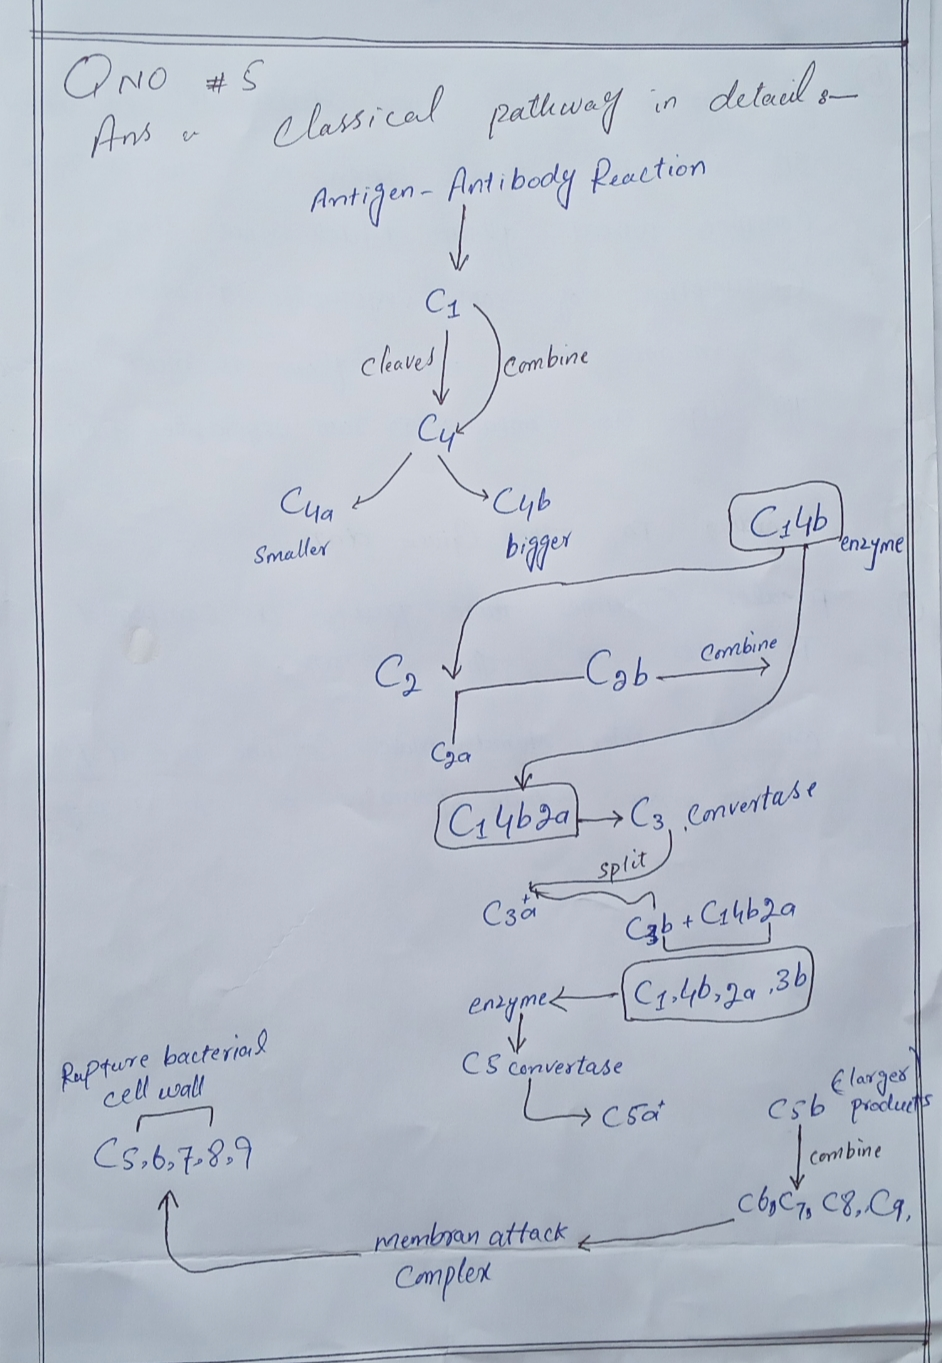 QNO # 5
Ans classical pathway in detail
Antigen-Antibody Reaction
C1
cleaves combine
C4
C4a C4b
smaller bigger
C14b
enzyme
C2 C2b combine
C2a
C14b2a C3 convertase
split
C3a+ C3b + C14b2a
enzyme C1,4b,2a,3b
C5 convertase
C5a+
C5b larger products
combine
C6, C7, C8, C9,
membran attack
complex
Rupture bacterial
cell wall
C5,6,7,8,9